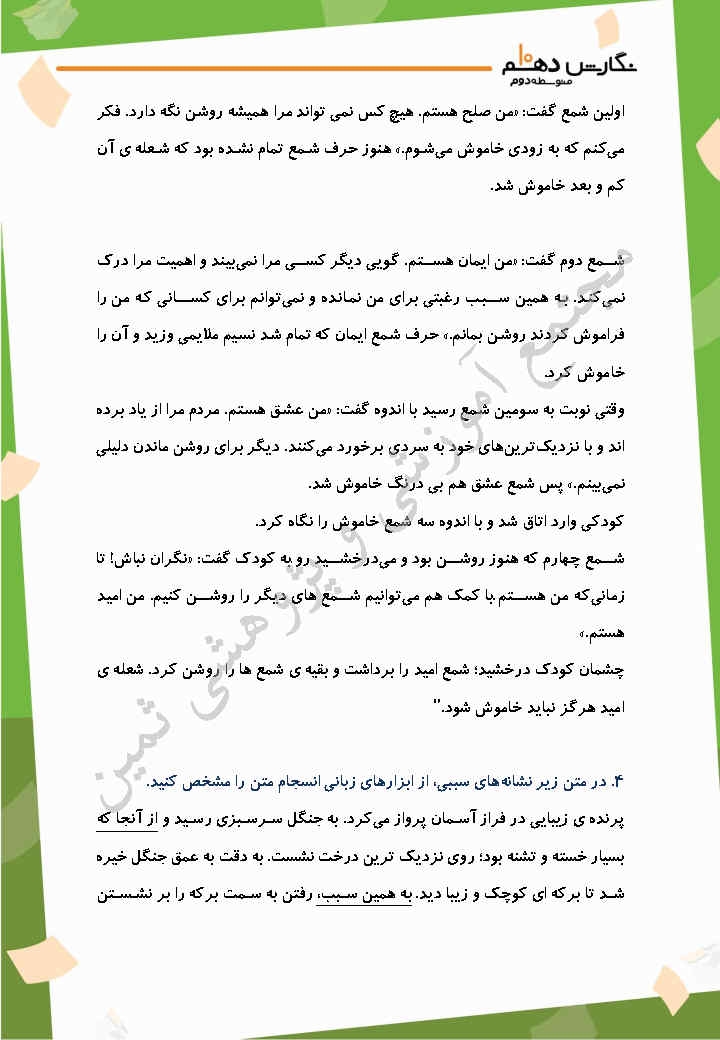 نگارش دهم ۱۰
متوسطه دوم
اولین شمع گفت: «من صلح هستم. هیچ کس نمی تواند مرا همیشه روشن نگه دارد. فکر
می‌کنم که به زودی خاموش می‌شوم.» هنوز حرف شمع تمام نشده بود که شعله ی آن
کم و بعد خاموش شد.
شمع دوم گفت: «من ایمان هستم. گویی دیگر کسی مرا نمی‌بیند و اهمیت مرا درک
نمی‌کند. به همین سبب رغبتی برای من نمانده و نمی‌توانم برای کسانی که من را
فراموش کردند روشن بمانم.» حرف شمع ایمان که تمام شد نسیم ملایمی وزید و آن را
خاموش کرد.
وقتی نوبت به سومین شمع رسید با اندوه گفت: «من عشق هستم. مردم مرا از یاد برده
اند و با نزدیک‌ترین‌های خود به سردی برخورد می‌کنند. دیگر برای روشن ماندن دلیلی
نمی‌بینم.» پس شمع عشق هم بی درنگ خاموش شد.
کودکی وارد اتاق شد و با اندوه سه شمع خاموش را نگاه کرد.
شمع چهارم که هنوز روشن بود و می‌درخشید رو به کودک گفت: «نگران نباش! تا
زمانی‌که من هستم با کمک هم می‌توانیم شمع های دیگر را روشن کنیم. من امید
هستم.»
چشمان کودک درخشید؛ شمع امید را برداشت و بقیه ی شمع ها را روشن کرد. شعله ی
امید هرگز نباید خاموش شود."
۴. در متن زیر نشانه‌های سببی، از ابزارهای زبانی انسجام متن را مشخص کنید.
پرنده ی زیبایی در فراز آسمان پرواز می‌کرد. به جنگل سرسبزی رسید و از آنجا که
بسیار خسته و تشنه بود؛ روی نزدیک ترین درخت نشست. به دقت به عمق جنگل خیره
شد تا برکه ای کوچک و زیبا دید. به همین سبب، رفتن به سمت برکه را بر نشستن
مجتمع آموزشی و پژوهشی ثمین